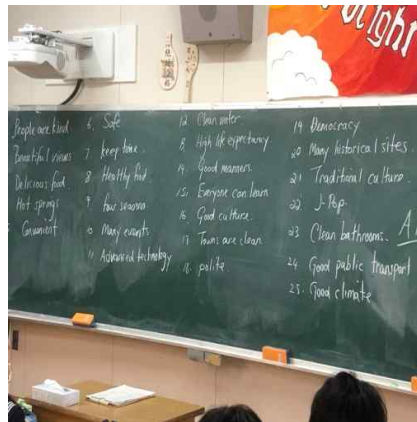 People are kind
Beautiful views
Delicious food
Hot springs
Convenient
6. Safe
7. keep time.
8. Healthy food.
9. four seasons
10 Many events
11 Advanced technology
12 Clean water
High life expectancy
14. Good manners.
15. Everyone can learn
16. Good culture.
17. Towns are clean.
18. polite.
19 Democracy
20. Many historical sites.
21. Traditional culture.
22. J-Pop.
23 Clean bathrooms.
24. Good public transport
25. Good climate